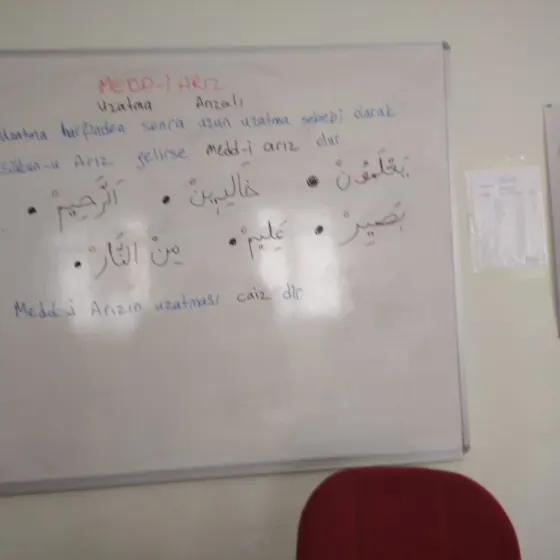 MEDD-İ ARIZ
Uzatma Arızalı
uzatma harfinden sonra uzun uzatma sebebi olarak
sükun-u Arız gelirse Medd-i arız olur
• يَعْلَمُونْ • خَالِدِينْ • اَلرَّحِيمْ
• بَصِيرْ • عَلِيمْ • مِنَ النَّارْ
Medd-i Arızın uzatması caiz dir